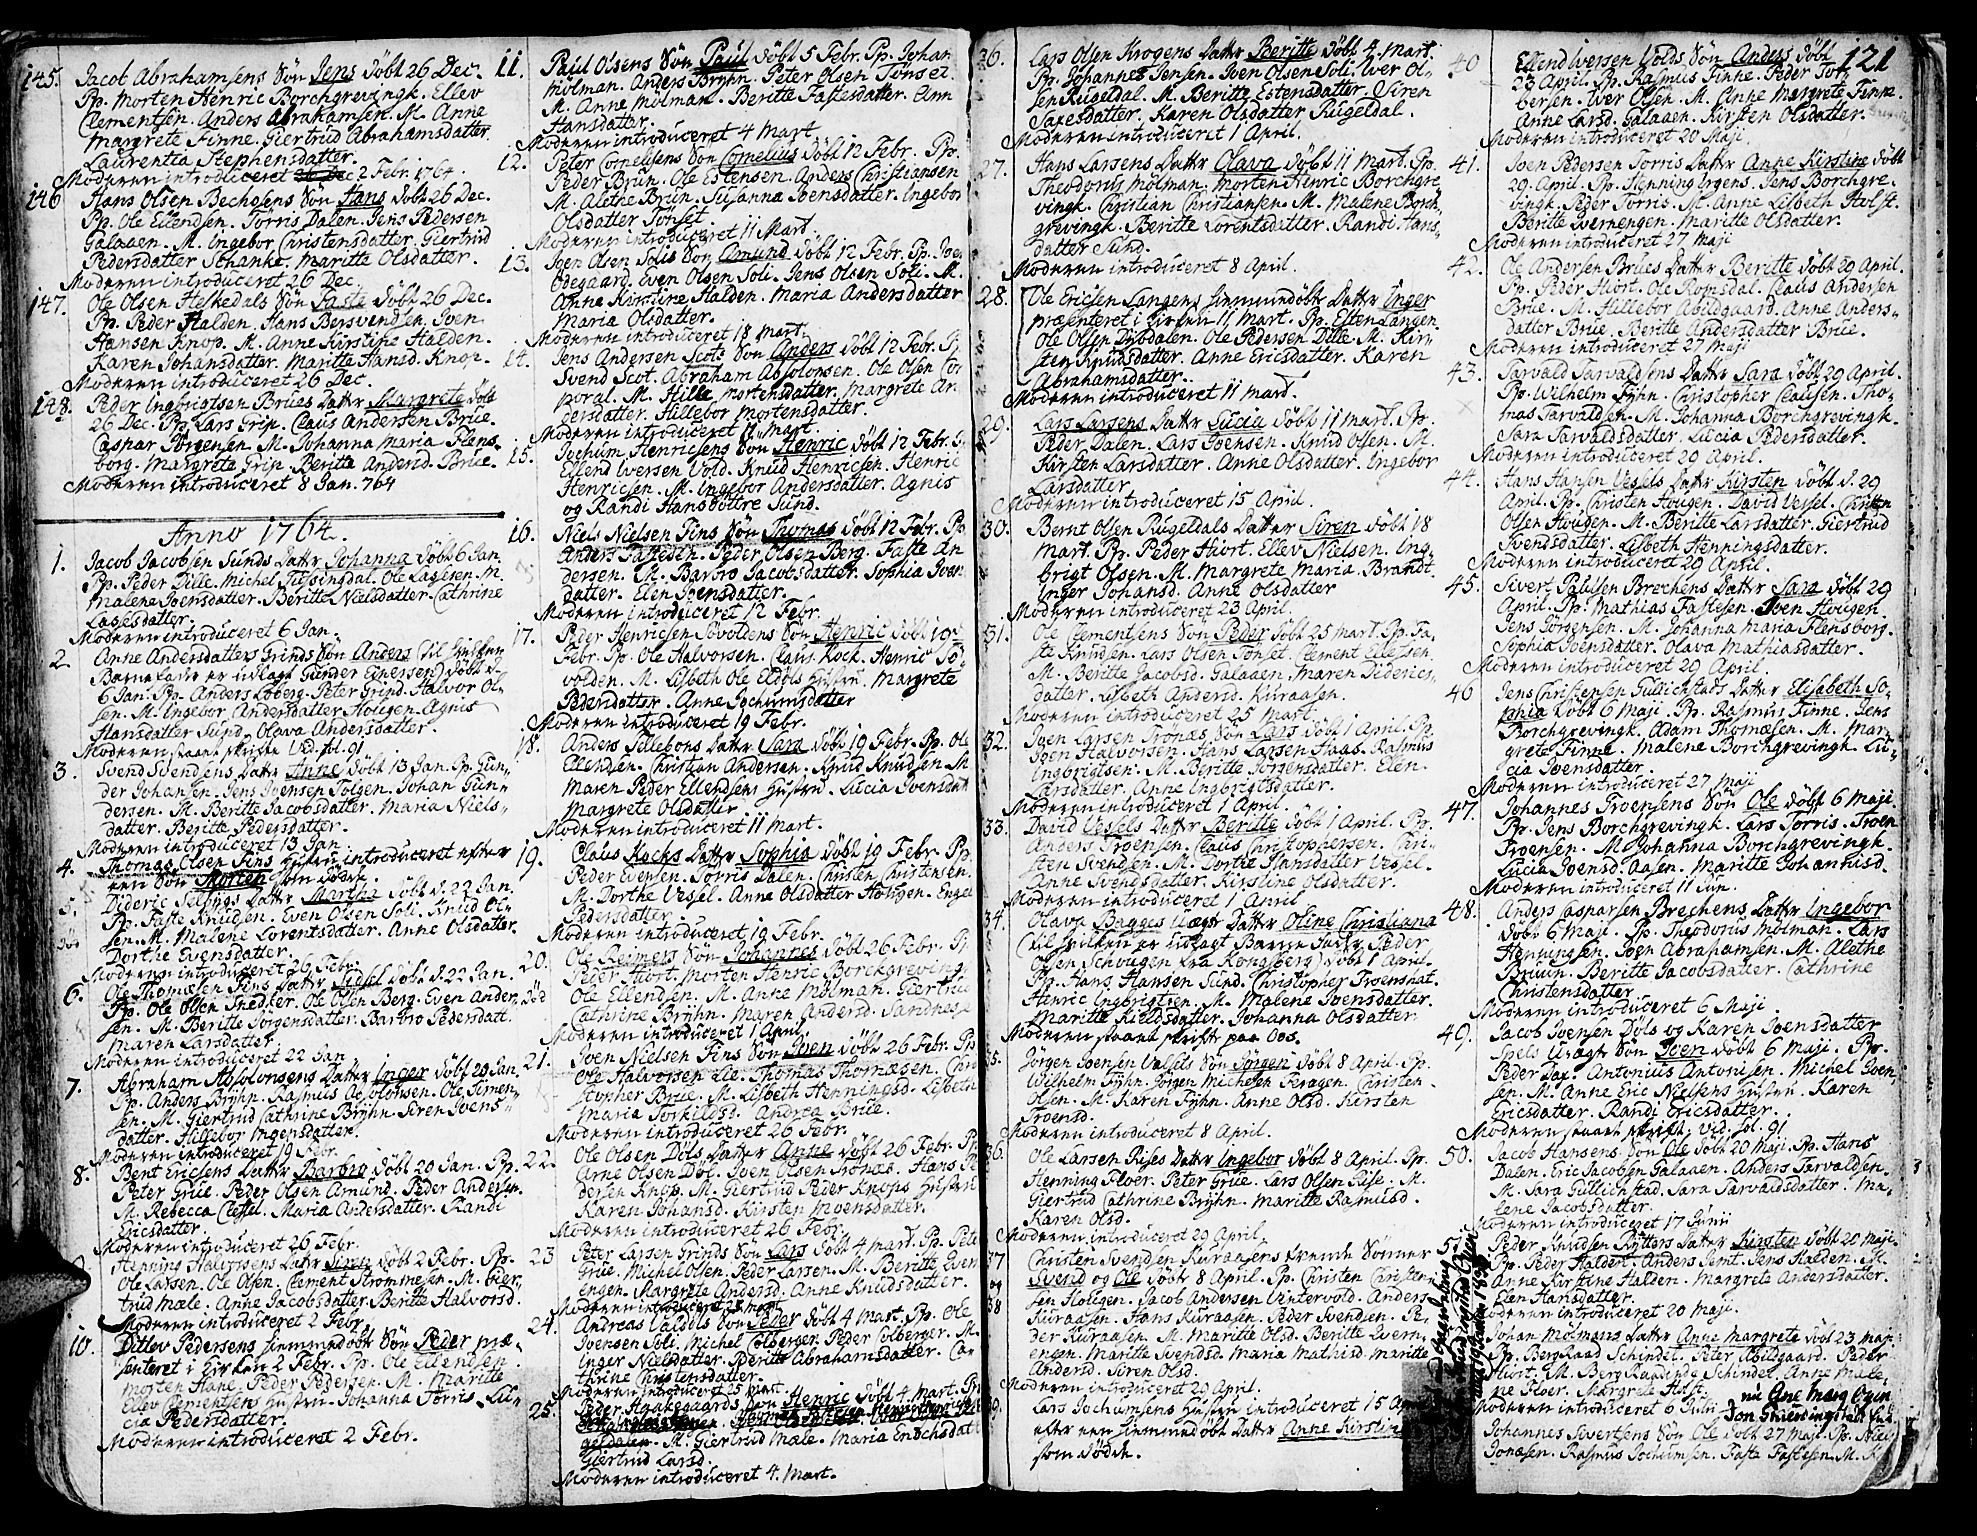 145. Jacob Abrahamsens Søn Jens døbt 26 Dec.
Pp. Morten Henric Borchgrevingk. Ellev
Clementsen. Anders Abrahamsen. M. Anne
Margrete Finne. Giertrud Abrahamsdatter
Laurentia Stephensdatter.
Moderen introduceret 26 Dec 2 Febr. 1764.
146 Hans Olsen Bechosens Søn Hans døbt 26 Dec.
Pp. Ole Ellendsen. Torris Dalen. Jens Pedersen
Galaaen. M. Ingebor Christensdatter. Giertrud
Pedersdatter Schanke. Maritte Olsdatter.
Moderen introduceret 26 Dec.
147. Ole Olsen Heskedals Søn Faste døbt 26 Dec.
Pp. Peder Halden. Hans Bersvendsen. Joen
Hansen Knop. M. Anne Kirstine Halden.
Karen Johansdatter. Maritte Hansd. Knop.
Moderen introduceret 26 Dec.
148. Peder Ingbrigtsen Brües Datter Margrete døbt
26 Dec. Pp. Lars Grip. Claus Andersen Brüe.
Caspar Jørgensen. M. Johanna Maria Flens
borg. Margrete Grip. Beritte Andersd. Brüe.
Moderen introduceret 8 Jan. 764
Anno 1764.
1. Jacob Jacobsen Sunds Datter Johanna døbt 6 Jan
Pp. Peder Dille. Michel Ole Lassesen. M.
Malene Joensdatter. Beritte Nielsdatter. Cathrine
Lassesdatter.
Moderen introduceret 6 Jan.
2. Anne Andersdatters Grinds Søn Anders (til hvilken
Barnefader er udlagt Gunder Einersen) døbt d.
6 Jan. Pp. Anders Loberg. Peter Grind. Halvor Ol-
sen. M. Ingebor Andersdatter Hougen. Agnis
Hansdatter Sund. Olava Andersdatter.
Moderen staaet skrifte Vid. fol. 91
3. Svend Svendsens Datter Anne døbt 13 Jan. Pp. Gun-
der Johansen. Jens Joensen Folgen. Johan Gun-
dersen. M. Beritte Jacobsdatter. Maria Niels-
datter. Beritte Pedersdatter.
Moderen introduceret 13 Jan
4. Thomas Olsen Fins Hustru introduceret efter
een Søn Morten som døde.
5. Dideric Selboes Datter Marthe døbt d. 22 Jan.
Pp. Faste Knudsen. Even Olsen Soli. Knud Ol-
sen. M. Malene Lorentsdatter. Anne Olsdatter.
Dorthe Evensdatter.
Moderen introduceret 26 Febr.
6. Ole Thomæsen Fins Datter Sidsel døbt d. 22 Jan.
Pp. Ole Olsen Snedker. Ole Olsen Berg. Even Ander-
sen. M. Beritte Jørgensdatter. Barbro Pedersdatt.
Maren Larsdatter
Moderen introduceret 22 Jan
7. Abraham Absolonsens Datter Inger døbt 20 Jan
Pp. Anders Bryhn. Rasmus Absolonsen. Ole Simen-
sen. M. Giertrud Cathrine Bryhn. Siren Joens-
datter. Hillebor Mogensdatter.
Moderen introduceret 19 Febr.
8. Bent Ericsens Datter Barbro døbt 20 Jan. Pp.
Peter Grüe. Peder Olsen Amünd. Peder Andersen.
M. Rebecca Clessel. Maria Andersdatter. Randi
Ericsdatter.
Moderen introduceret 26 Febr.
9. Henning Halvorsens Datter Siren døbt 2 Febr. Pp.
Ole Larsen. Ole Olsen. Clement Strømmesen. M. Gier-
trud Mæle. Anne Jacobsdatter. Beritte Halvorsd.
Moderen introduceret 2 Febr.
10. Ditlev Pedersens hiemmedøbt Søn Peder præ-
senteret i Kirken 2 Febr. Pp. Ole Ellendsen
Morten Hane. Peder Pedersen. M. Maritte
Ellev Clementsens Hustru. Johanna Torris. Lu-
cia Pedersdatter.
Moderen introduceret 2 Febr.
11. Paul Olsens Søn Paul døbt 5 Febr. Pp. Johan
Molman. Anders Bryhn. Peter Olsen Tonset.
M. Anne Molman. Beritte Fastesdatter. Ann
Hansdatter.
Moderen introduceret 4 Mart.
12. Peter Cornelisens Søn Cornelius døbt 12 Febr. Pp.
Peder Brun. Ole Estensen. Anders Christiansen
M. Alethe Brun. Susanna Joensdatter. Ingebor
Olsdatter Tonset
Moderen introduceret 11 Mart.
13. Joen Olsen Solis Søn Amund døbt 12 Febr. Pp. Joen
Ødegaard. Even Olsen Soli. Jens Olsen Soli. M.
Anne Kirstine Halden. Maria Andersdatter
Maria Olsdatter.
Moderen introduceret 18 Mart.
14. Jens Andersen Scots Søn Anders døbt 12 Febr. Pp
Svend Scot. Abraham Absolonsen. Ole Olsen Cor
poral. M. Hille Mortensdatter. Margrete An
dersdatter. Hillebor Mortensdatter.
Moderen introduceret 11 Mart.
15. Jochum Henricsens Søn Henric døbt 12 Febr.
Ellend Iversen Vold. Knud Henricsen. Henric
Henricsen. M. Ingebor Andersdatter. Agnis
og Randi Hansdøttre Sund.
16. Niels Nielsen Fins Søn Thomas døbt 12 Febr. Pp
Anders Fastesen. Peder Olsen Berg. Faste An
dersen. M. Barbro Jacobsdatter. Sophia Iver
datter. Elen Joensdatter.
Moderen introduceret 12 Febr.
17. Peder Henricsen Søvoldens Søn Henric døbt 19
Febr. Pp. Ole Halvorsen. Claus Kock. Henric Sø-
volden. M. Lisbeth Ole Eldøls Hustru. Margrete
Pedersdatter. Anne Jochumsdatter
Moderen introduceret 19 Febr.
18. Anders Tellebons Datter Sara døbt 19 Febr. Pp. Ole
Ellendsen. Christian Andersen. Knud Knudsen. M
Maren Peder Ellendsens Hustru. Lucia Joensdatt
Margrete Olsdatter
Moderen introduceret 11 Mart.
19. Claus Kocks Datter Sophia døbt 19 Febr. Pp.
Peder Evensen. Torris Dalen. Christen Christensen.
M. Dorthe Vessel. Anne Olsdatter Hougen. Engel
Pedersdatter.
Moderen introduceret 19 Febr.
20. Ole Reimers Søn Johannes døbt 26 Febr. Pp
Peder Hiort. Morten Henric Borchgreving
Ole Ellendsen. M. Anne Mølman. Giertrud
Cathrine Bryhn. Maren Andersd. Sandnese
Moderen introduceret 1 April.
21. Joen Nielsen Fins Søn Joen døbt 26 Febr. Pp
Ole Halvorsen Lie. Thomas Thomæsen. Chri
stopher Brüe. M. Lisbeth Henningsd. Lisbeth
Maria Torkildsd. Andrea Brüe.
Moderen introduceret 26 Febr.
22. Ole Olsen Døls Datter Anne døbt 26 Febr. Pp
Arne Olsen Døl. Joen Olsen Tronæs. Hans Pe
dersen Knop. M. Giertrud Peder Knops Hustru
Karen Johansd. Kirsten Moensdatter.
Moderen introduceret 26 Febr.
23 Peter Larsen Grinds Søn Lars døbt 4 Mart. Pp. Pete
Grüe. Michel Olsen. Peder Larsen. M. Beritte Even
engen. Margrete Andersd. Anne Knudsdatter.
Moderen introduceret 25 Mart.
24. Andreas Valdøls Søn Peder døbt 4 Mart. Pp. Ole
Joensen Soli. Michel Colbergsen. Peder Colberger. M.
Inger Nielsdatter. Beritte Abrahamsdatter. Ca-
thrine Christensdatter.
Moderen introduceret 25 Mart.
25. Peder Haakegaards Søn Henric døbt 4 Mart. Pp
M. Giertrud Mæle. Maria Enochsdatt
Giertrud Larsd.
Moderen introduceret 4. Mart.
26. Lars Olsen Krogens Datter Beritte døbt 4. Mart.
Pp. Johannes Jensen. Joen Olsen Soli. Iver Ol-
sen Rugeldal. M. Beritte Estensdatter. Siren
Saxesdatter. Karen Olsdatter Rügeldal.
Moderen introduceret 1 April.
27. Hans Larsens Datter Olava døbt 11 Mart. Pp.
Theodorus Molman. Morten Hinric Borchgre
vingk. Christian Christiansen. M. Malene Borch-
grevingk. Beritte Lorentsdatter. Randi Hans-
datter Sund.
Moderen introduceret 8 April.
28. Ole Ericsen Langens hiemmedøbte Datter Inger
præsenteret i Kirken 11 Mart. Pp. Esten Langen.
Ole Olsen Dybdalen. Ole Pedersen Dille. M. Kir-
sten Knudsdatter. Anne Ericsdatter. Karen
Abrahamsdatter.
Moderen introduceret 11 Mart.
29. Lars Larsens Datter Lucia døbt 11 Mart. Pp.
Peder Dalen. Lars Joensen. Knud Olsen. M.
Kirsten Larsdatter. Anne Olsdatter. Ingebor
Larsdatter
Moderen introduceret 15 April.
30. Bernt Olsen Rugeldals Datter Siren døbt 18
Mart. Pp. Peder Hiort. Ellev Nielsen. Ing-
brigt Olsen. M. Margrete Maria Brandt.
Inger Johansd. Anne Olsdatter
Moderen introduceret 23 April.
31. Ole Clementsens Søn Peder døbt 25 Mart. Pp. Fa-
ste Knudsen. Lars Olsen Tonset. Clement Ellefsen.
M. Beritte Jacobsd. Galaaen. Maren Diderics-
datter. Lisbeth Andersd. Kuraasen.
Moderen introduceret 25 Mart.
32. Joen Larsen Tronæs Søn Lars døbt 1 April. Pp.
Joen Halvorsen. Hans Larsen Haas. Rasmus
Ingbrigtsen. M. Beritte Jørgensdatter. Elen
Larsdatter. Anne Ingbrigtsdatter.
Moderen introduceret 1 April.
33. David Vessels Datter Beritte døbt 1 April. Pp.
Anders Troensen. Claus Christophersen. Chri-
sten Svendsen. M. Dorthe Hansdatter Vessel.
Anne Svendsdatter. Kirstine Olsdatter.
Moderen introduceret 1 April
34. Olava Bagges Uægte Datter Oline Christiana
(til hvilken er udlagt Barne Fader Peder
Olsen Schougen fra Kongsberg) døbt 1 April.
Pp. Hans Hansen Sund. Christopher Troenshat.
Henric Ingbrigtsen. M. Malene Joensdatter.
Maritte Kieldsdatter. Johanna Olsdatter
Moderen staaet skrifte paa Oos.
35. Jørgen Joensen Vessels Søn Jørgen døbt 8 April. Pp.
Wilhelm Fyhn. Jørgen Michelsen Feragen. Christen
Olsen. M. Karen Fyhn. Anne Olsd. Kirsten
Troensd.
Moderen introduceret 8 April.
36. Ole Larsen Rises Datter Ingebor døbt 8 April. Pp.
Henning Floer. Peter Grüe. Lars Olsen Riise. M.
Giertrud Cathrine Bryhn. Maritte Rasmusd.
Karen Olsd.
Moderen introduceret 29 April.
37 Christen Svendsen Kuraasens tvende Sønner
og Svend og Ole døbt 8 April. Pp. Christen Christen-
38 sen Hougen. Jacob Andersen Vintervold. Anders
Kuraasen. Hans Kuraasen. Peder Svendsen. Pe-
der Kuraasen. M. Maritte Olsd. Beritte Evern-
engen. Maritte Svendsd. Maria Mathisd. Maritte
Andersd. Siren Olsd.
Moderen introduceret 29 April.
39. Lars Jochumsens Hustru introduceret 15 April
efter een hiemmedøbt Datter Anne Kirstine
som døde.
121
40 Ellend Iversen Volds Søn Anders døbt
23 April. Pp. Rasmus Finne. Peder Tor-
bersen. Iver Olsen. M. Anne Margrete Finne.
Anne Larsd. Galaaen. Kirsten Olsdatter.
Moderen introduceret 20 Maji.
41. Joen Pedersen Torris Datter Anne Kirstine døbt
29. April. Pp. Henning Irgens. Jens Borchgre-
vingk. Peder Torris. M. Anne Lisbeth Holst.
Beritte Evernengen. Maritte Olsdatter.
Moderen introduceret 27 Maji
42. Ole Andersen Brües Datter Beritte døbt 29 April.
Pp. Peder Hiort. Ole Romsdal. Claus Andersen
Brüe. M. Hillebor Abildgaard. Anne Anders-
datter Brüe. Beritte Andersdatter Brüe.
Moderen introduceret 27 Maji
43. Tarvald Tarvaldsens Datter Sara døbt 29 April.
Pp. Wilhelm Fyhn. Christopher Clausen. Tho-
mas Tarvaldsen. M. Johanna Borchgrevingk.
Sara Tarvaldsdatter. Lucia Pedersdatter.
Moderen introduceret 29 April.
44. Hans Hansen Vessels Datter Kirsten døbt d. 29
April. Pp. Christen Hougen. David Vessel. Christen
Olsen Hougen. M. Beritte Larsdatter. Giertrud
Svendsdatter. Lisbeth Henningsdatter.
Moderen introduceret 29 April.
45. Sivert Paulsen Brechens Datter Sara døbt 29
April. Pp. Mathias Fastesen. Joen Hougen
Jens Jørgensen. M. Johanna Maria Flensborg.
Sophia Joensdatter. Olava Mathiasdatter.
Moderen introduceret 29 April
46 Jens Christensen Gullichstads Datter Elisabeth So-
phia døbt 6 Maji. Pp. Rasmus Finne. Jens
Borchgrevingk. Adam Thomæsen. M. Mar-
grete Finne. Malene Borchgrevingk. Lu-
cia Joensdatter.
Moderen introduceret 27 Maji
47. Johannes Troensens Søn Ole døbt 6 Maji
Pp. Jens Borchgrevingk. Lars Torris. Troen
Troensen. M. Johanna Borchgrevingk.
Lucia Joensd. Aasen. Maritte Johannisd.
Moderen introduceret 11 Jun.
48. Anders Casparsen Brechens Datter Ingebor
døbt 6 Maji. Pp. Theodorus Molman. Lars
Henningsen. Joen Abrahamsen. M. Alethe
Bruun. Beritte Jacobsdatter. Cathrine
Christensdatter
Moderen introduceret 6 Maji
49. Jacob Joensen Døls og Karen Joensdatter
Spels Uægte Søn Joen døbt 6 Maji. Pp.
Peder Dax. Antonius Antonisen. Michel Joen-
sen. M. Anne Eric Nielsens Hustru. Karen
Ericsdatter. Randi Ericsdatter.
Moderen staaet skrifte, vid. fol. 91
50. Jacob Hansens Søn Ole døbt 20 Maji. Pp. Hans
Dalen. Eric Jacobsen Galaaen. Anders Tarvaldsen.
M. Sara Gullichstad. Sara Tarvaldsdatter. Ma-
lene Jacobsdatter.
Moderen introduceret 17 Junii
51. Peder Knudsen Rytters Datter Kirsten døbt 20 Maji.
Pp. Peder Halden. Anders Semt. Jens Halden. M.
Anne Kirstine Halden. Margrete Andersdatter.
Elen Hansdatter.
Moderen introduceret 20 Maji.
Johan Mølmans Datter Anne Margrete døbt 23 Maji
Pp. BergRaad Schindel. Peter Abildgaard. Peder
Hiort. M. BergRaadinde Schindel. Anne Male-
ne Floer. Margrete Hiort.
Moderen introduceret 6 Julii
Johannes Sivertsens Søn Ole døbt 27 Maji. Pp. Niels
Jonæsen. Rasmus Jochumsen. Faste Fastesen. M. K